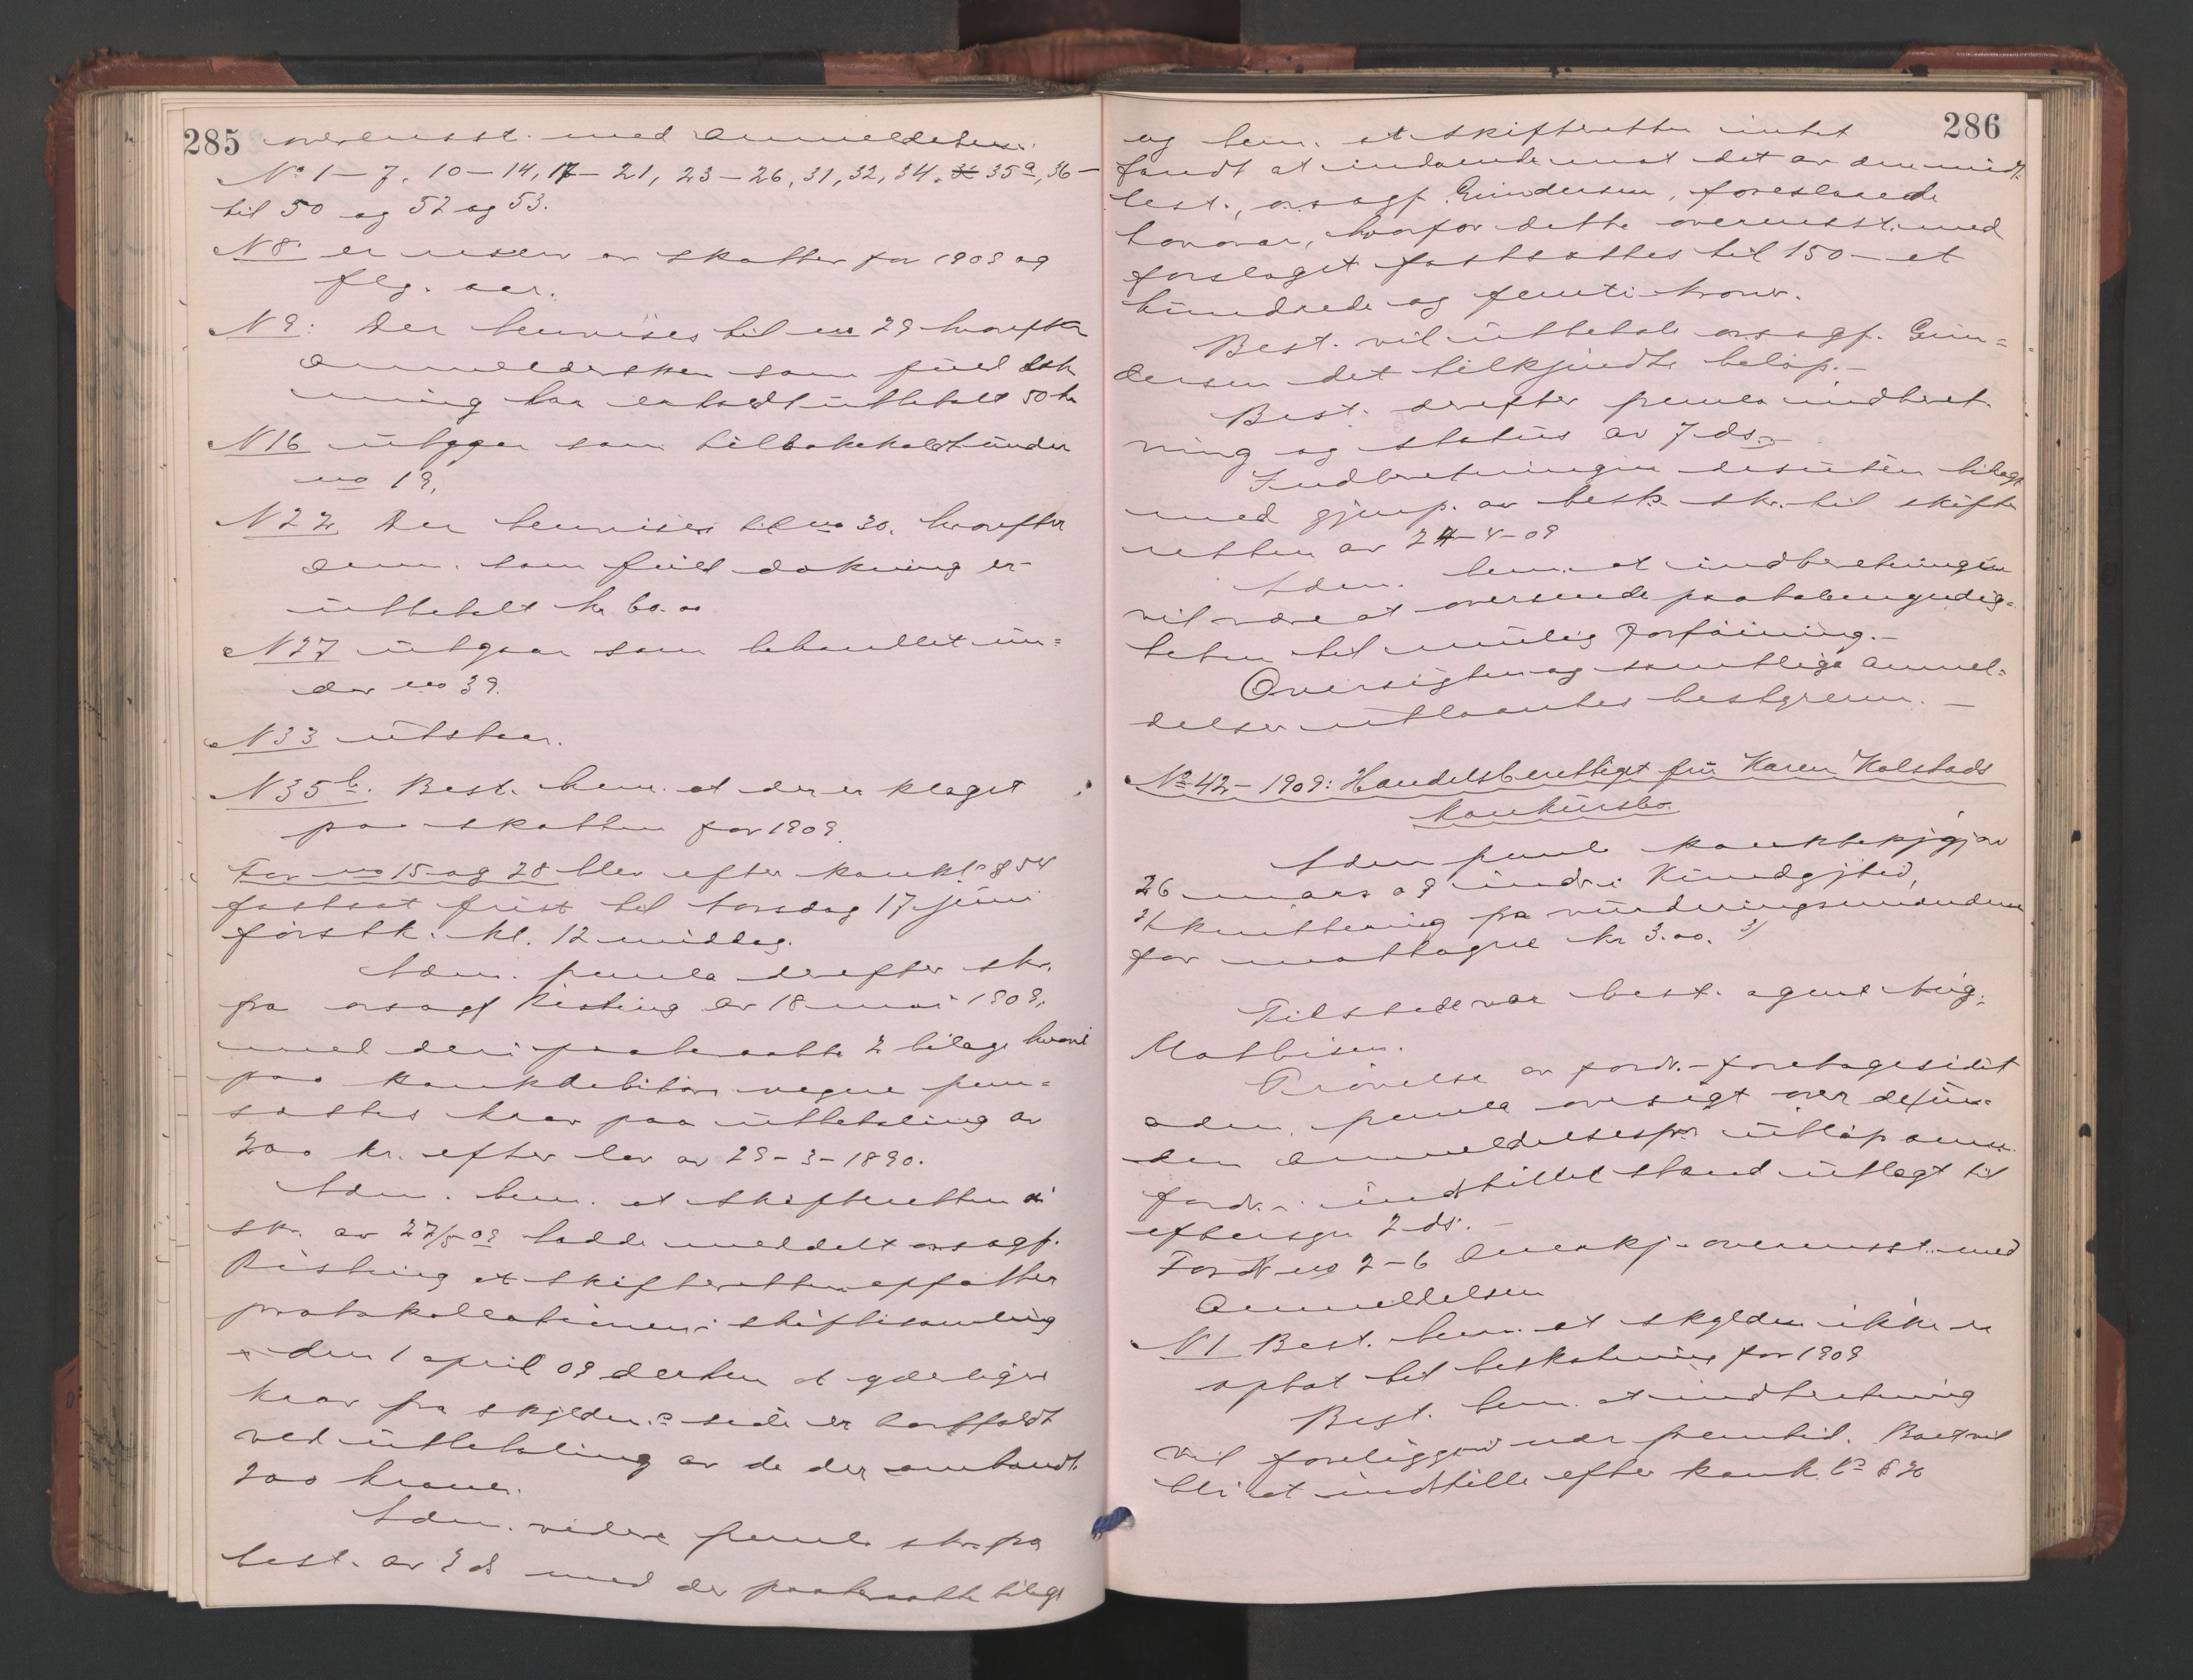 285
overensst. med anmeldelsen.
No 1 – 7, 10 – 14, 17 – 21, 23 – 26, 31, 32, 34, 35a, 36 –
til 50 og 52 og 53.
N 8 er reserv. av skatter for 1909 og
flg. aar.
N 9: Der henvises til no 29 hvorefter
anmeldersken som fuld dæk
ning har erholdt utbetalt 50 kr
N 16 utgaar som tilbakekaldt under
no 19.
N 22 Der henvises til no 30. hvorefter
anm. som fuld dækning er
utbetalt kr 60.00
N 27 utgaar som behandlet un=
der no 39.
N 33 utstaar.
N 35b. Best. bem. at der er klaget
paa skatten for 1909.
For no 15 og 28 blev efter konkl. § 54
fastsat frist til torsdag 17 juni
førstk. kl. 12 middag.
Adm. fremla derefter skr.
fra orsagf Risting av 18 mai 1909.
med deri paaberaabte 2 bilage hvori
paa konkdebitors vegne frem=
sattes krav paa utbetaling av
200 kr. efter lov av 29-3-1890.
Adm. bem. at skifteretten i
skr. av 27/5 09 hadde meddelt orsagf.
Risting at skifteretten opfatter
protokollationen i skiftesamling
den 1 april 09 derhen at yderligere
krav fra skyldn.s side er bortfaldt
ved utbetaling av de der omhandl.
200 kroner.
Adm. videre fremla skr. fra
best. av 3 ds med der paaberaabte bilage
286
og bem. at skifteretten intet
fandt at indvende mot det av den midl.
best., orsagf. Gundersen, foreslaaede
honorar, hvorfor dette overensst. med
forslaget fastsattes til 150 – et
hundrede og femti – kroner.
Best. vil utbetale orsagf. Gun=
dersen det tilkjendte beløp. –
Best. derefter fremla indberet
ning og status av 7 ds. –
Indberetningen desuten bilagt
med gjenp. av best.s skr. til skifte
retten av 24-4-09
Adm. bem. at indberetningen
vil være at oversende paatalemyndig=
heten til mulig forføining. –
Oversigten og samtlige anmel=
delser utlaantes bestyreren. –
No 42 – 1909: Handelsberettiget fru Karen Kolstads
konkursbo.
Adm freml. konkbekjgjør
26 mars 09 indr. i Kundgjtid,
2/ kvittering fra vurderingsmændene
for mottagne kr 3.00. 3/
Tilstede var best. agent Aug.
Mathisen.
Prøvelse av fordr. – foretages idet
adm. fremla oversigt over de før
den anmeldelsesfr. utløp anm.
fordr. – indstillet stand utlagt til
eftersyn 2 ds. –
Fordr no 2 – 6 anerkj. overensst. med
anmeldelsen
N 1 Best. bem. at skylden ikke er
opført til beskatning for 1909
Best. bem. at indberetning
vil foreligge i nær fremtid. Boet vil
bli at indstille efter konk. l. §